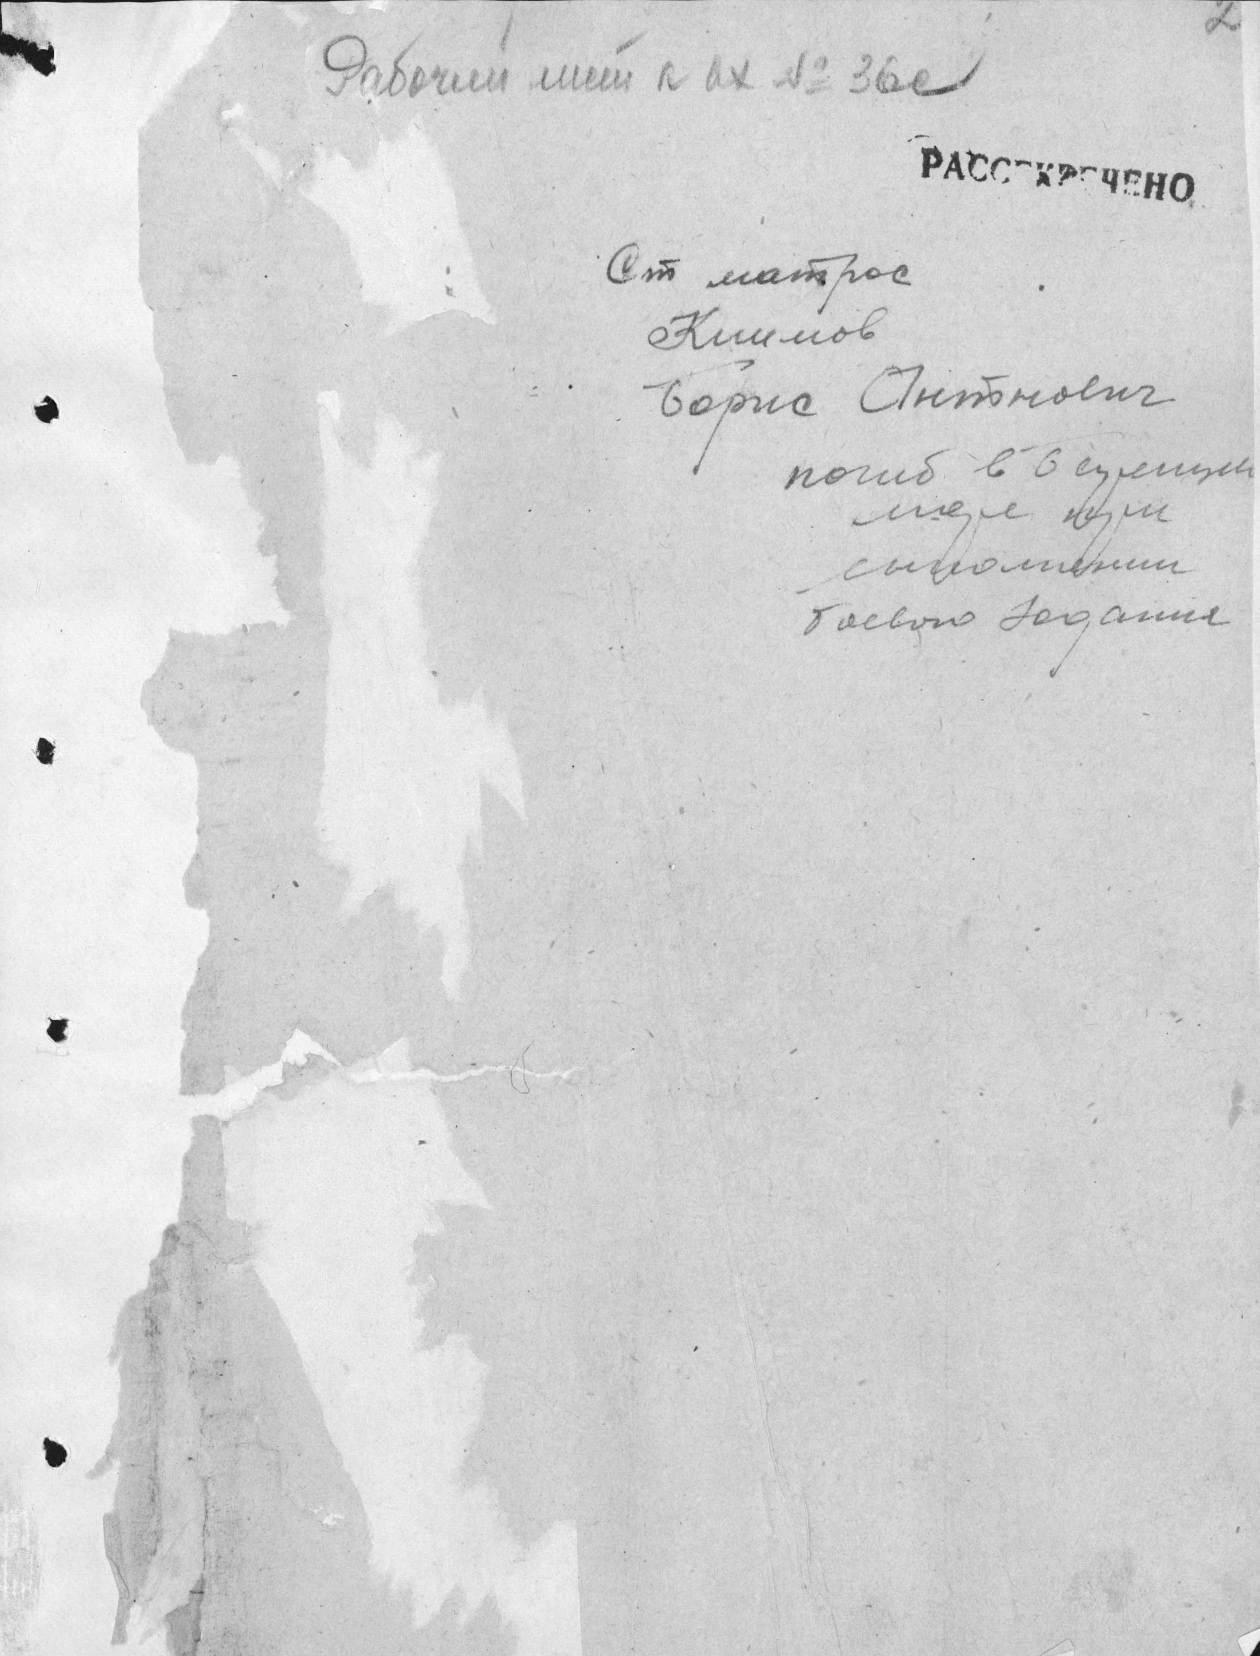 2
Рабочий лист к вх № 36с
РАССЕКРЕЧЕНО
Ст матрос
Климов
Борис Антнович
погиб в Баренцев
море при
выполнении
боевого задания